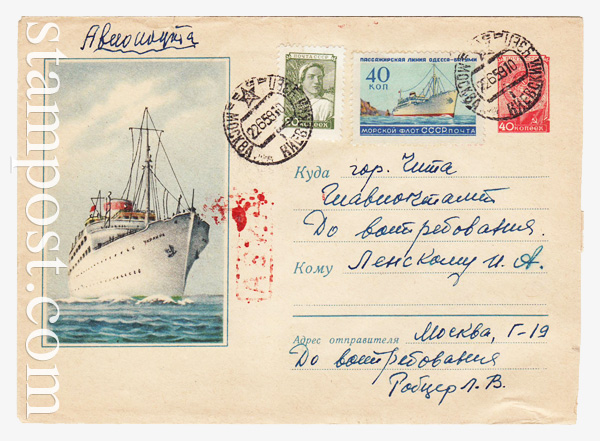 Авиопочта
ПАССАЖИРСКАЯ ЛИНИЯ ОДЕССА-БАТУМИ
40
КОП
МОРСКОЙ ФЛОТ СССР ПОЧТА
40 КОПЕЕК
МОСКВА
22659
Куда гор. Чита
Главпочтамт
До востребования.
Кому Ленскому И. А.
АВИА
Адрес отправителя Москва, Г-19
До востребования
Робцер Л. В.
stampost.com